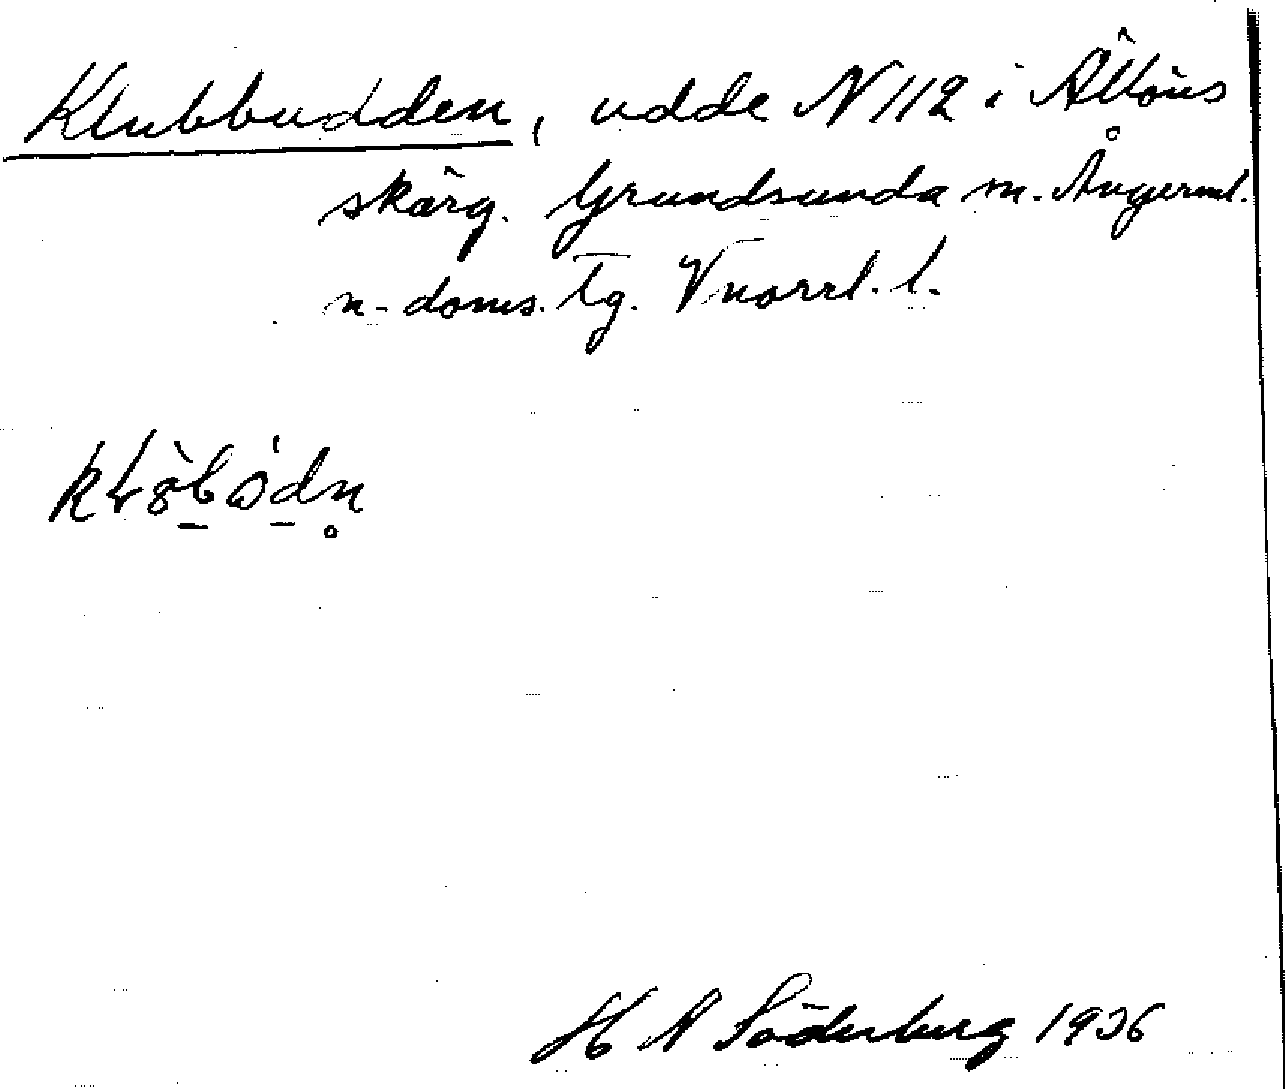 Klubbudden, udde N 112 i Ällöns
skärg. Grundsunda sn. Ångerml.
n. doms. tg. Vnorrl. l.
H A Söderberg 1936